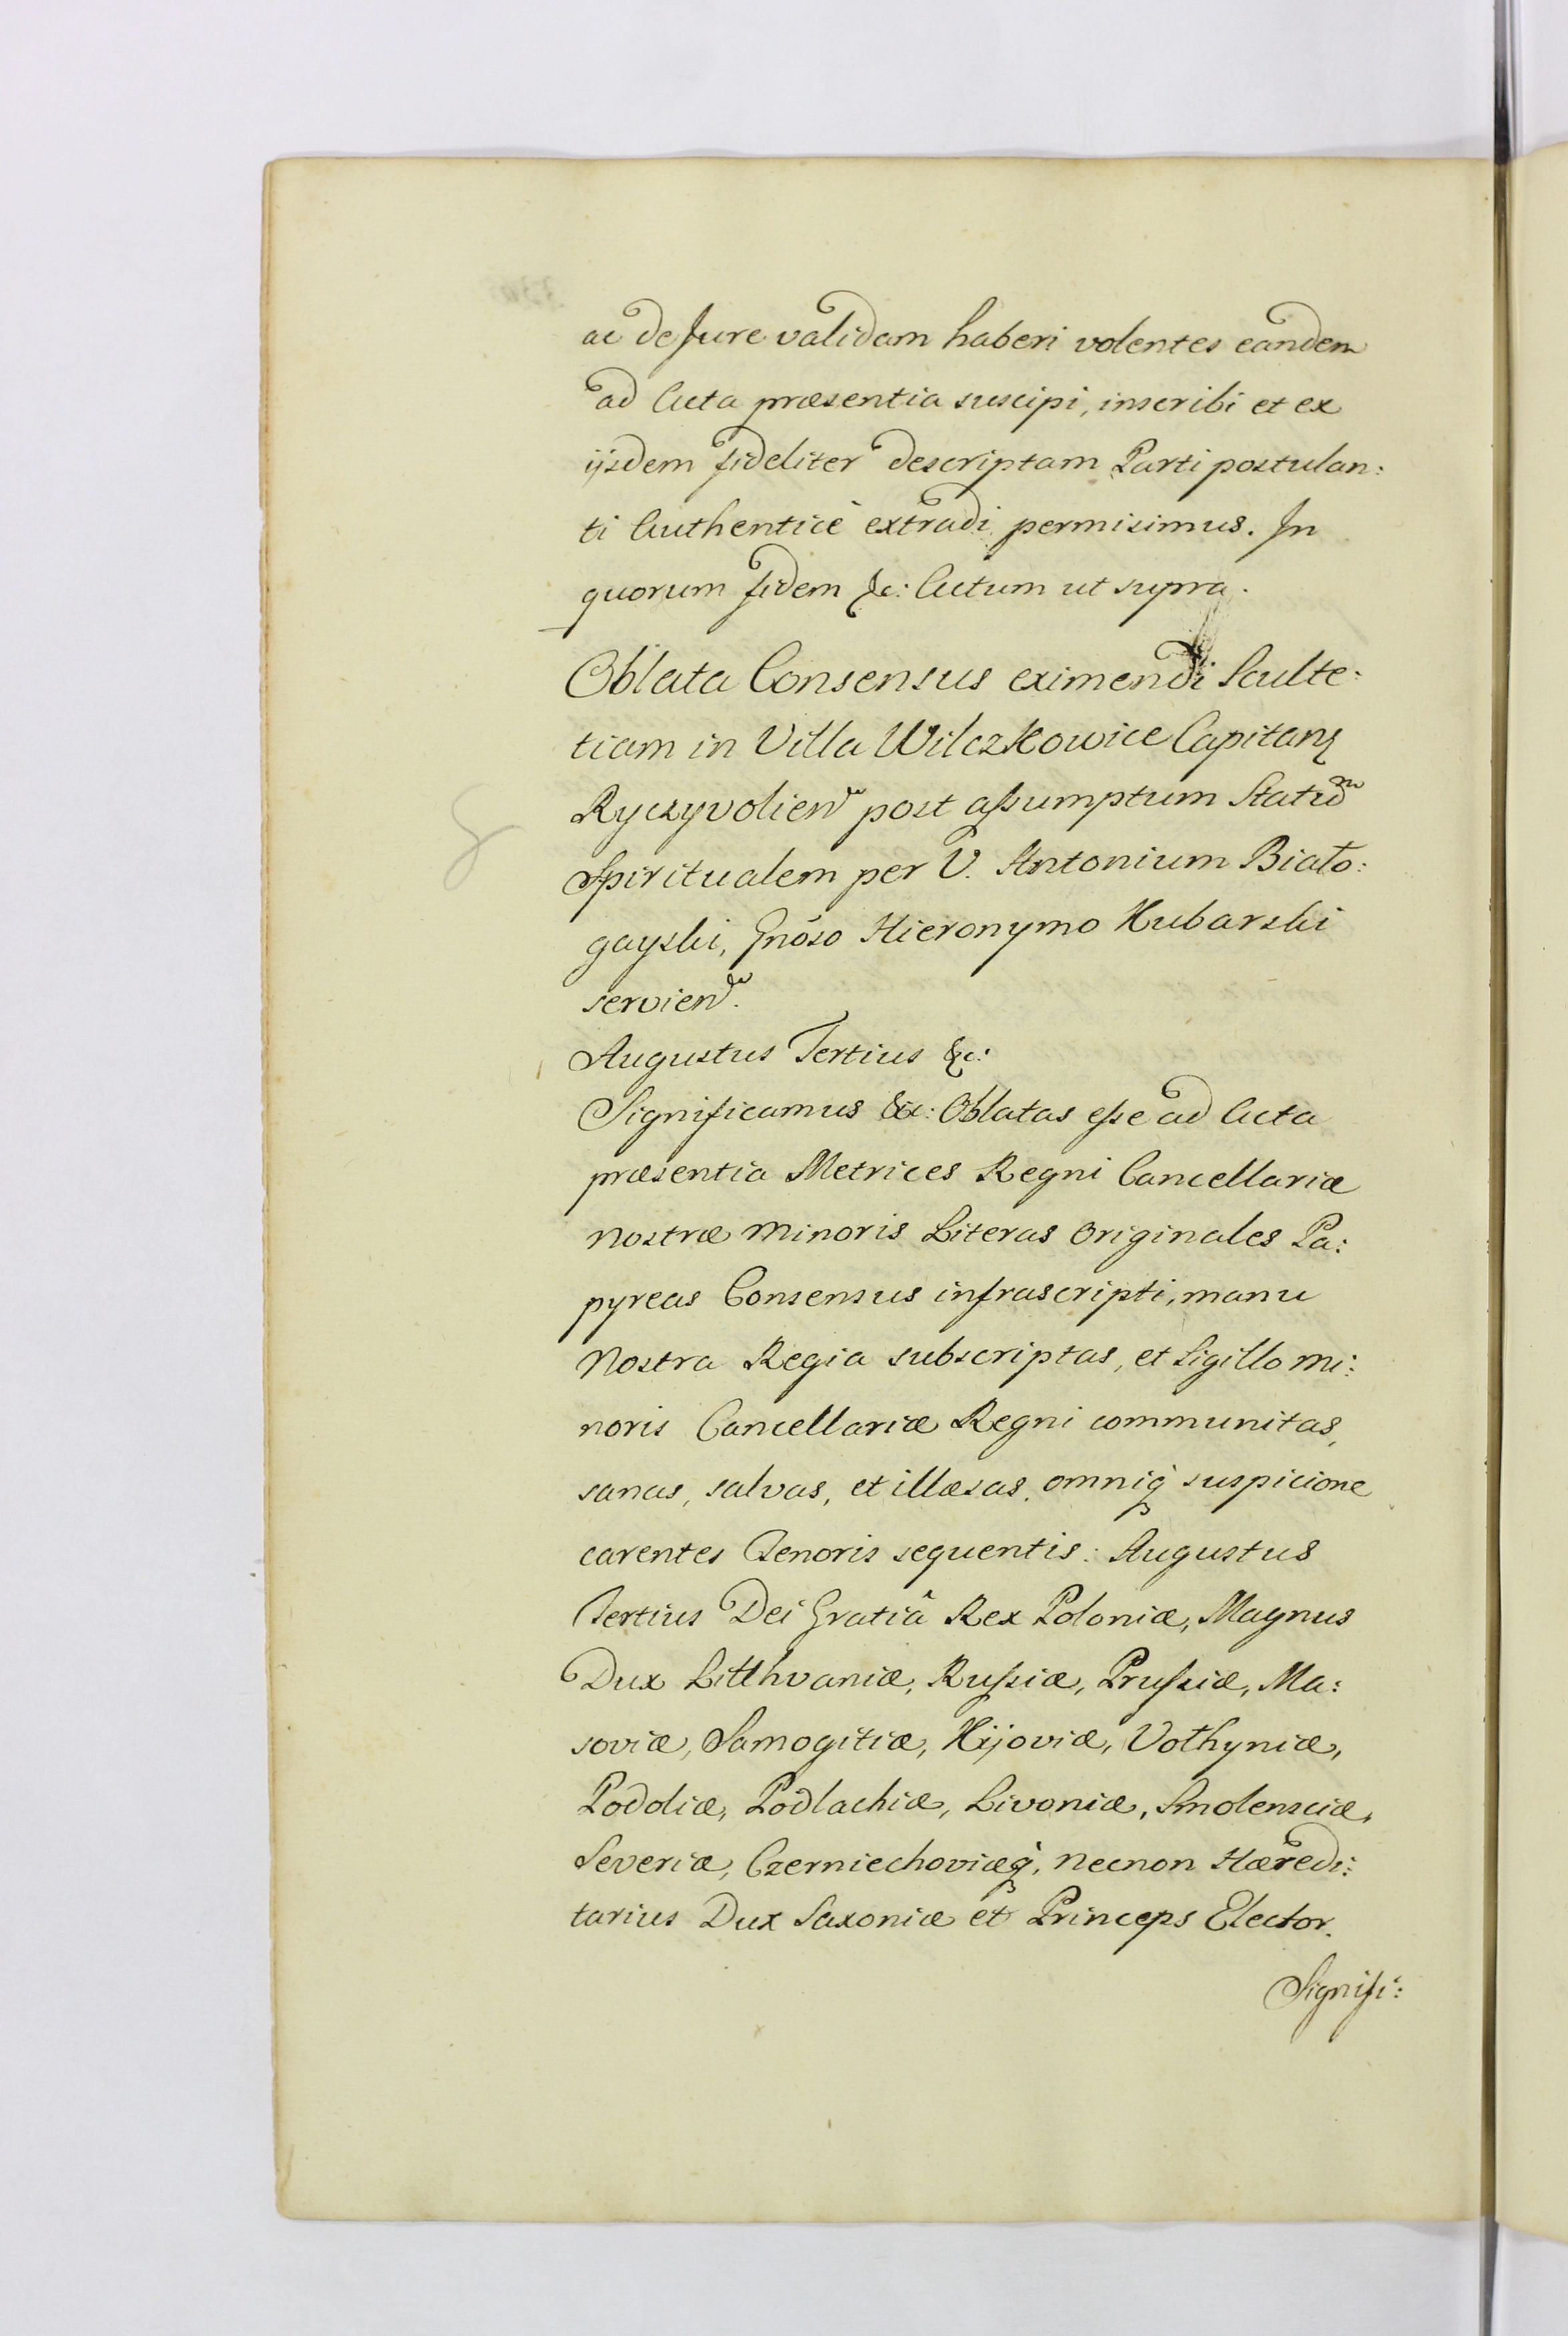 ac de Jure validam haberi volentes eandem
ad Acta præsentia suscipi, inscribi et ex
ijsdem fideliter descriptam Parti postulan:
ti Authenticè extradi permisimus. In
quorum fidem &c: Actum ut supra.
Oblata Consensus eximendi Sculte:
tiam in Villa Wilczkowice Capitan
Ryczyvolien post aſsumptum Statum
Spiritualem per V. Antonium Biało:
gayski, Gnoso Hieronymo Kubarski
servien.
Augustus Tertius &c:
Significamus &c: Oblatas eſse ad Acta
præsentia Metrices Regni Cancellariæ
Nostræ Minoris Literas Originales Pa:
pyreas Consensus infrascripti, manu
Nostra Regia subscriptas, et Sigillo mi:
noris Cancellariæ Regni communitas,
sanas, salvas, et illæsas, omniq̀ suspicione
carentes Tenoris sequentis: Augustus
Tertius Dei Gratiâ Rex Poloniæ, Magnus
Dux Litthvaniæ, Ruſsiæ, Pruſsiæ, Ma:
soviæ, Samogitiæ, Kijoviæ, Volhyniæ,
Podoliæ, Podlachiæ, Livoniæ, Smolensciæ,
Severiæ, Czerniechoviæq̀, necnon Hæredi:
tarius Dux Saxoniæ et Princeps Elector.
Signifi: